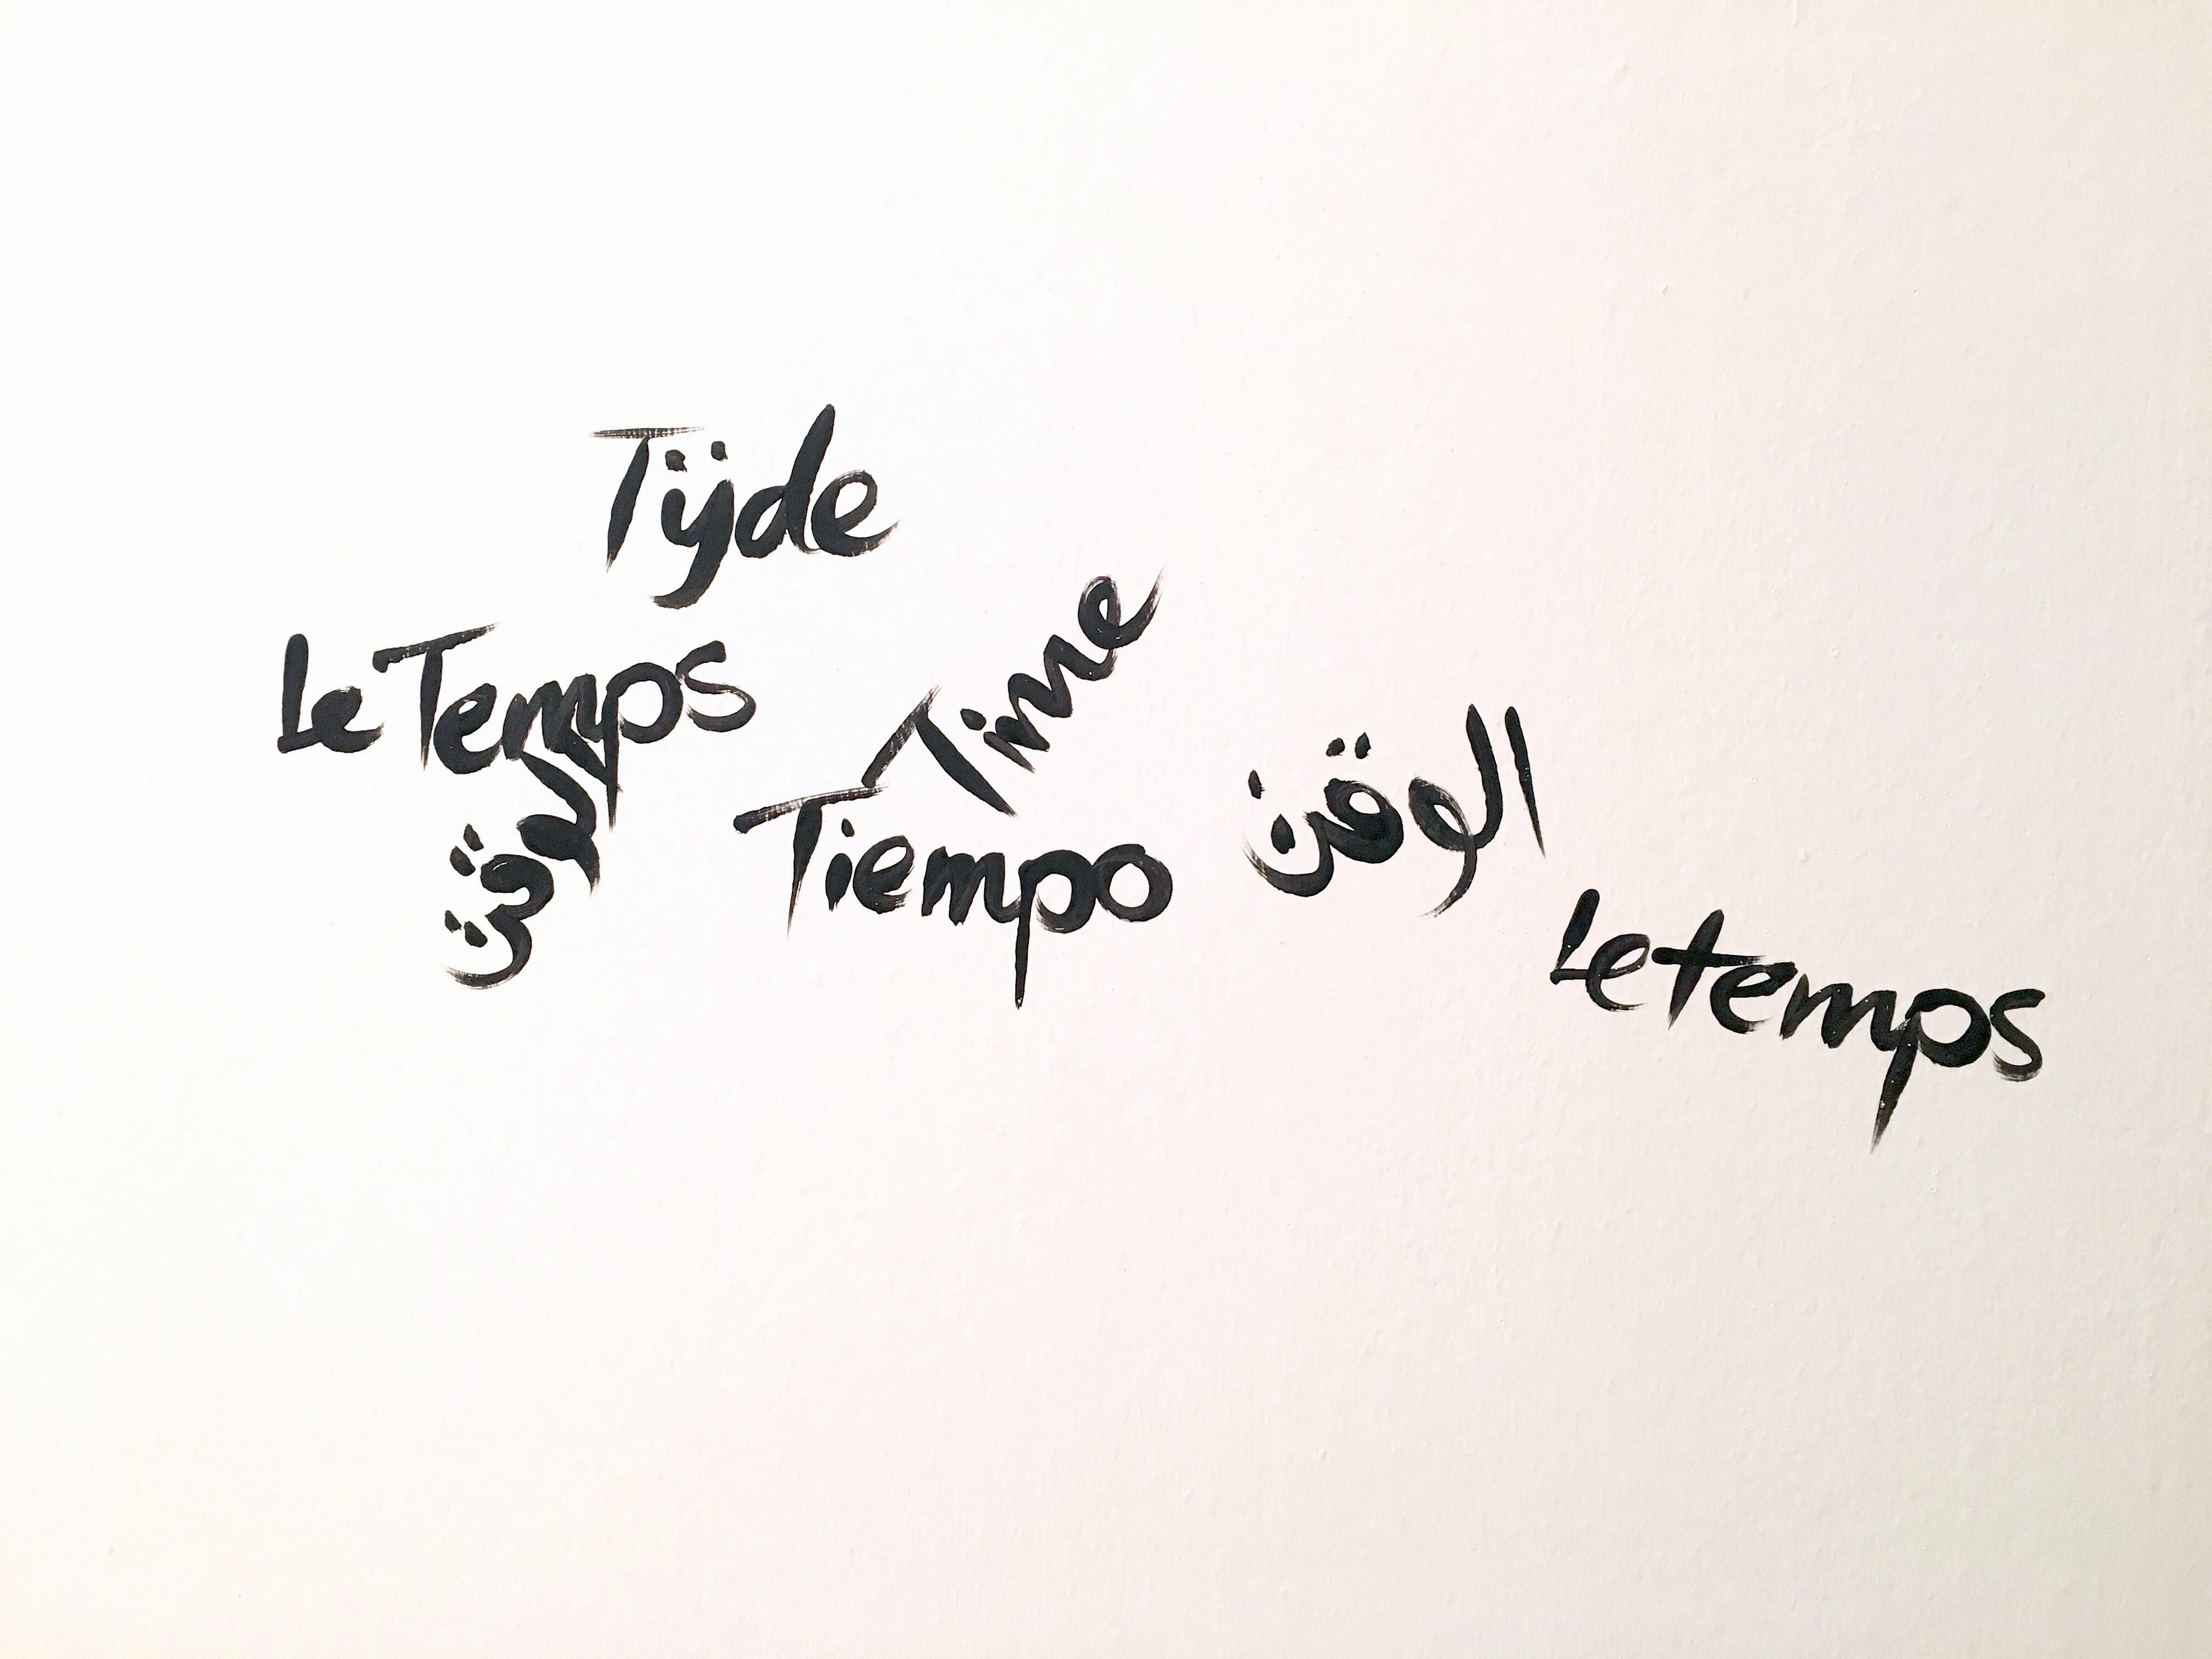 Tijde
Le Temps
Time
الوقت
Tiempo
الوقت
Le temps